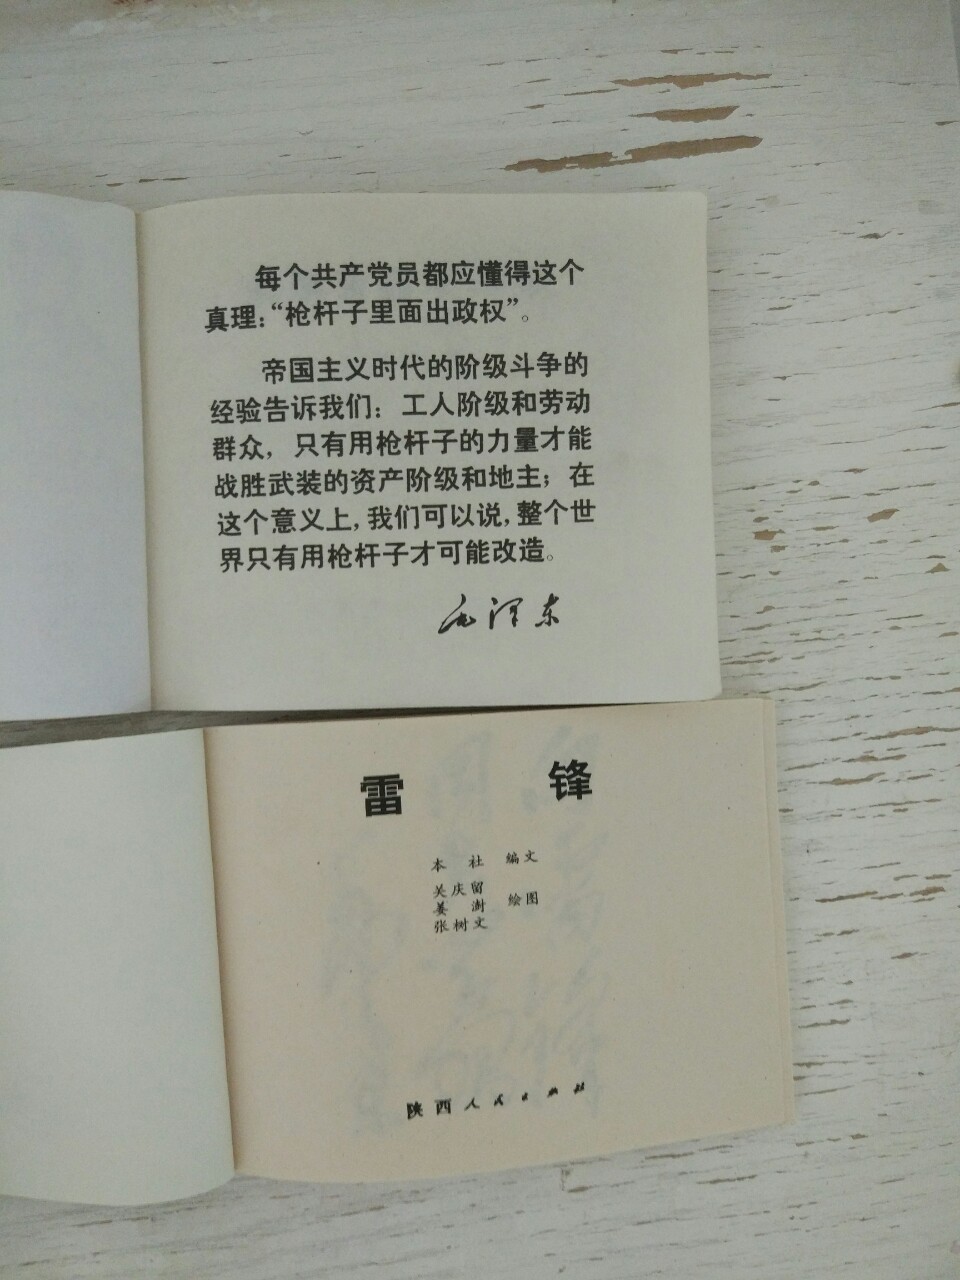 每个共产党员都应懂得这个
真理：“枪杆子里面出政权”。
帝国主义时代的阶级斗争的
经验告诉我们：工人阶级和劳动
群众，只有用枪杆子的力量才能
战胜武装的资产阶级和地主；在
这个意义上，我们可以说，整个世
界只有用枪杆子才可能改造。
毛泽东
雷 锋
本 社 编文
关庆留
姜 澍 绘图
张树文
陕西人民出版社